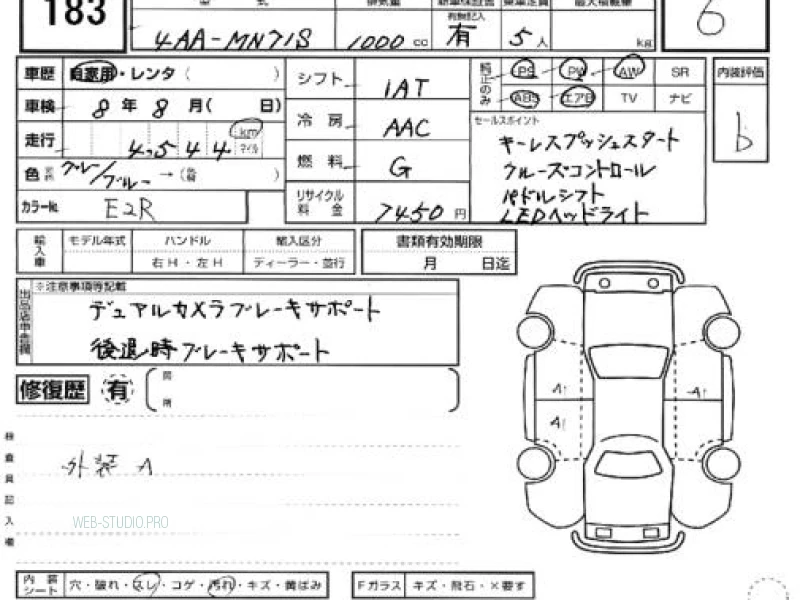 183
4AA-MN71S 1000 cc 有無記入 有 5人 kg 6
車歴 自家用・レンタ( ) シフト iAT 純正のみ PS PW AW SR 内装評価
車検 8年8月( 日) ABS エアB TV ナビ
走行 4,544 km マイル 冷房 AAC セールスポイント b
キーレスプッシュスタート
色 グレー/ブルー →( ) 燃料 G クルーズコントロール
カラーNo. E2R リサイクル料金 7450円 パドルシフト
LEDヘッドライト
輸入車 モデル年式 ハンドル 輸入区分 書類有効期限
右H・左H ディーラー・並行 月 日迄
※注意事項等記載
出品店申告欄 デュアルカメラブレーキサポート
後退時ブレーキサポート
修復歴 有
A1 A1
A1
検査員記入欄
外装 A
WEB-STUDIO.PRO
内装シート 穴・破れ・スレ・コゲ・汚れ・キズ・黄ばみ Fガラス キズ・飛石・×要す